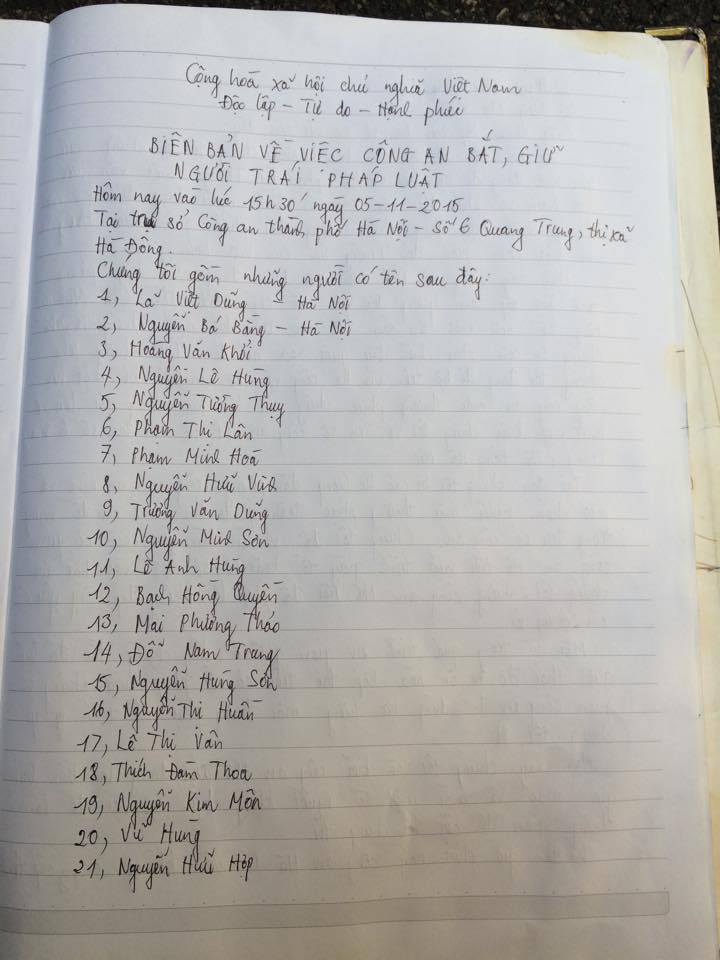 Cộng hoà xã hội chủ nghĩa Việt Nam
Độc lập - Tự do - Hạnh phúc
BIÊN BẢN VỀ VIỆC CÔNG AN BẮT, GIỮ
NGƯỜI TRÁI PHÁP LUẬT
Hôm nay vào lúc 15h30' ngày 05-11-2015
Tại trụ sở Công an thành phố Hà Nội - số 6 Quang Trung, thị xã
Hà Đông.
Chúng tôi gồm những người có tên sau đây:
1, Lã Việt Dũng - Hà Nội
2, Nguyễn Bá Bằng - Hà Nội
3, Hoàng Văn Khởi
4, Nguyễn Lê Hùng
5, Nguyễn Tường Thụy
6, Phạm Thị Lân
7, Phạm Minh Hoà
8, Nguyễn Hữu Vinh
9, Trương Văn Dũng
10, Nguyễn Minh Sơn
11, Lê Anh Hùng
12, Bạch Hồng Quyền
13, Mai Phương Thảo
14, Đỗ Nam Trung
15, Nguyễn Hùng Sơn
16, Nguyễn Thị Huần
17, Lê Thị Vân
18, Thích Đàm Thoa
19, Nguyễn Kim Môn
20, Vũ Hùng
21, Nguyễn Hữu Hợp